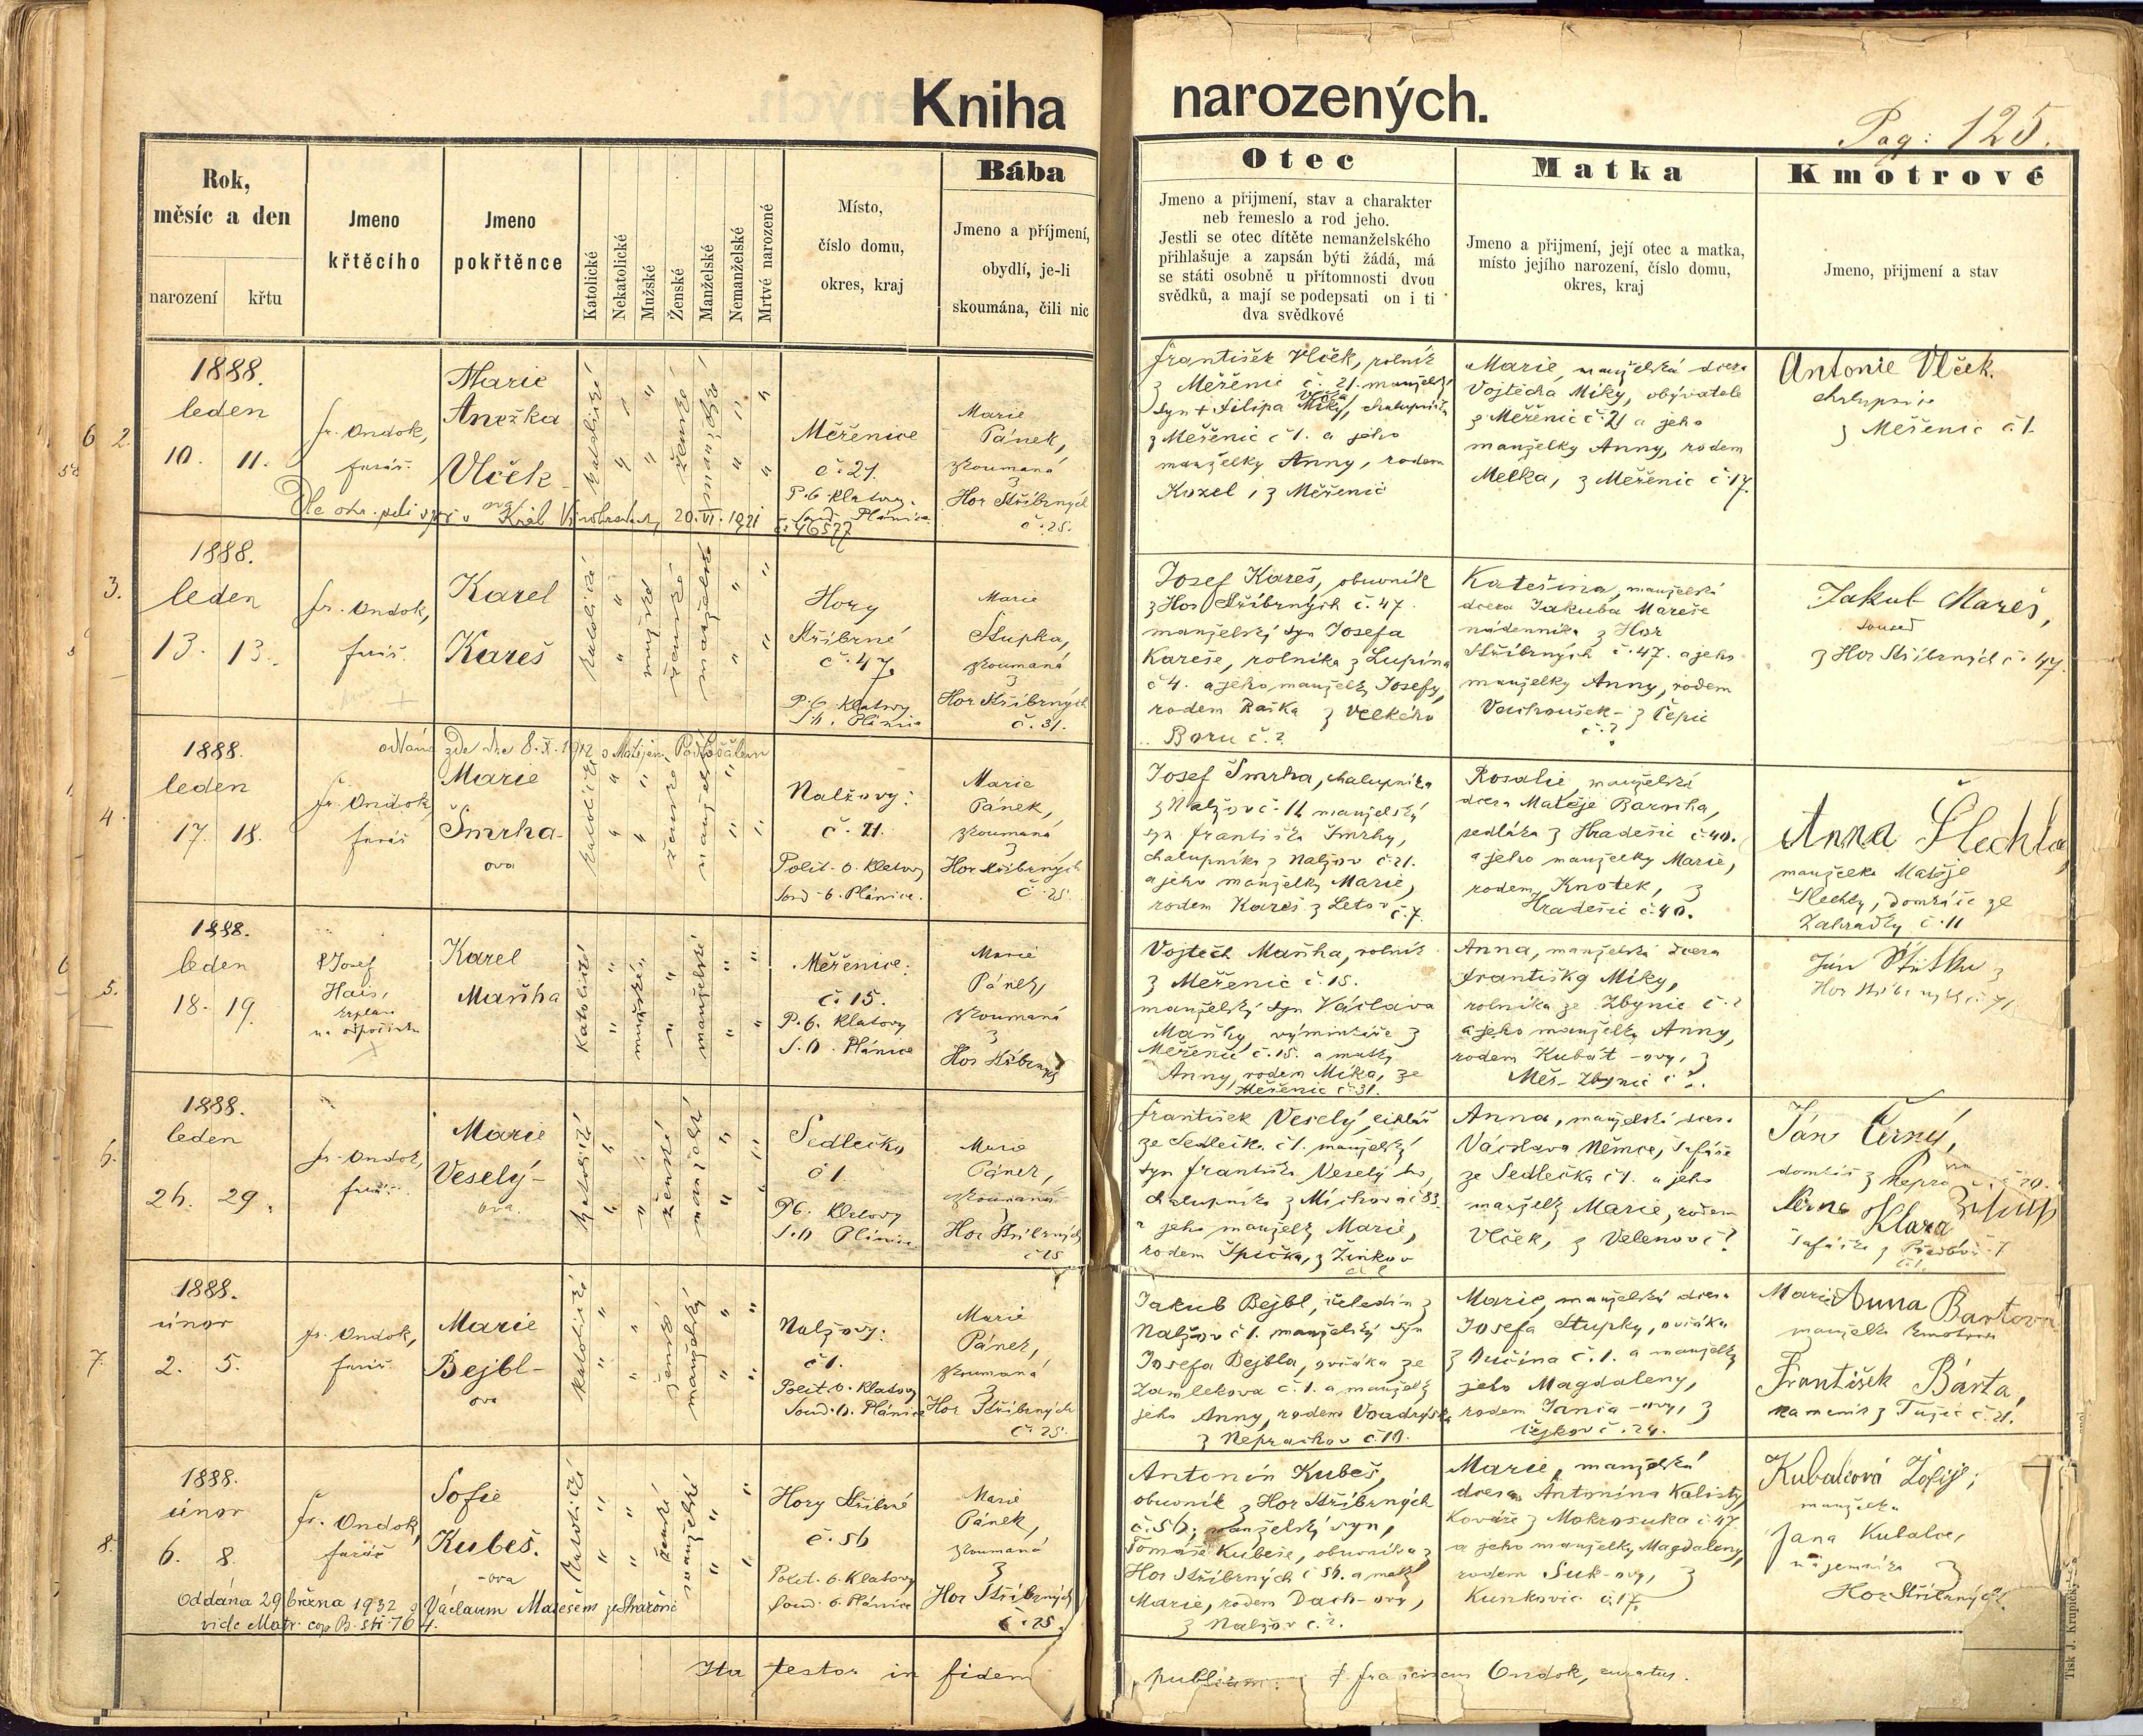 Kniha narozených.
Pag: 125.
Rok,
měsíc a den
narození
křtu
Jmeno
křtěcího
Jmeno
pokřtěnce
Katolické
Nekatolické
Mužské
Ženské
Manželské
Nemanželské
Mrtvé narozené
Místo,
číslo domu,
okres, kraj
Bába
Jmeno a příjmení,
obydlí, je-li
skoumána, čili nic
Otec
Jmeno a přijmení, stav a charakter
neb řemeslo a rod jeho.
Jestli se otec dítěte nemanželského
přihlašuje a zapsán býti žádá, má
se státi osobně u přítomnosti dvou
svědků, a mají se podepsati on i ti
dva svědkové
Matka
Jmeno a přijmení, její otec a matka,
místo jejího narození, číslo domu,
okres, kraj
Kmotrové
Jmeno, přijmení a stav
2.
1888.
leden
10. 11.
fr. Ondok,
farář.
Marie
Anežka
Vlček
katolické
ženské
manželské
Měřenice
č. 21.
P. O. Klatovy.
Plánice
Marie
Pánek,
zkoumaná
z
Hor Stříbrných
č. 25.
20. VI. 1921
č. 46577
František Vlček, rolník
z Měřenic č. 21. manželský
syn + Filipa Míky, chalupníka
Vlčka
z Měřenic č 1. a jeho
manželky Anny, rodem
Kozel, z Měřenic
Marie, manželská dcera
Vojtěcha Míky, obývatele
z Měřenic č. 21 a jeho
manželky Anny, rodem
Melka, z Měřenic č 17.
Antonie Vlček.
chalupnice
z Měřenic č 1.
3.
1888.
leden
13. 13.
fr. Ondok,
farář.
Karel
Kareš
katolické
mužské
ženské
manželské
Hory
Stříbrné
č. 47
P. O. Klatovy
S. o. Plánice
Marie
Stupka,
zkoumaná
z
Hor Stříbrných
č. 31.
Josef Kareš, obuvník
z Hor Stříbrných č. 47.
manželský syn Josefa
Kareše, rolníka z Lupina
č 4. a jeho manželky Josefy,
rodem Raška z Velkého
Boru č. ?
Kateřina, manželská
dcera Jakuba Mareše
nádenníka z Hor
Stříbrných č. 47. a jeho
manželky Anny, rodem
Vachoušek - z Čepic
č. ?
Jakub Mareš,
soused
z Hor Stříbrných č. 47.
4.
oddána zde dne 8. X. 1912 s Matějem
1888.
leden
17. 18.
fr. Ondok,
farář
Marie
Šmrha-
ova
katolické
ženské
manželské
Nalžovy:
č. 21.
Polit. o. Klatovy
Soud. o. Plánice.
Marie
Pánek,
zkoumaná
z
Hor Stříbrných
č. 25.
Josef Šmrha, chalupníka
z Nalžov č. 12 manželský
syn Františka Šmrhy,
chalupníka z Nalžov č 21.
a jeho manželky Marie,
rodem Kareš z Letov č. 7.
Rosalie, manželská
dcera Matěje
sedláka z Hradešic č 40.
a jeho manželky Marie,
rodem Knotek, z
Hradešic č. 40.
Anna Šlechta,
manželka Matěje
Šlechty, domkáře ze
Zahrádky č. 11
5.
1888.
leden
18. 19.
P Josef
Hais,
na odpočinku
Karel
Maňha
katolické
mužské
manželské
Měřenice.
č. 15.
P. O. Klatovy
S. O. Plánice
Marie
Pánek,
zkoumaná
z
Hor Stříbrných
Vojtěch Maňha, rolník
z Měřenic č. 15.
manželský syn Václava
Maňhy, výminkáře z
Měřenic č. 15. a matky
Anny, rodem Míka, ze
Měřenic č. 31.
Anna, manželská dcera
Františka Míky,
rolníka ze Zbynic č. ?
a jeho manželky Anny,
rodem Kubát -ovy, z
Měs. Zbynic č ?.
Jan
6.
1888.
leden
26. 29.
fr. Ondok,
farář.
Marie
Veselý-
ova.
katolické
ženské
manželské
Sedlečko
č 1.
P. O. Klatovy
S. O. Plánice.
Marie
Pánek,
zkoumaná
z
Hor Stříbrných
č 25
František Veselý, cihlář
ze Sedlečka č 1. manželský
syn Františka Veselýho,
chalupníka z Míchova č 83.
a jeho manželky Marie,
rodem Špička, z Žinkov
Anna, manželská dcera
Václava Němce, šafáře
ze Sedlečka č 1. a jeho
manželky Marie, rodem
Vlček, z Velenov č ?
Ján Černý,
domkář z
Klara
7.
1888.
únor
2. 5.
fr. Ondok,
farář.
Marie
Bejbl-
ova
katolické
ženské
manželský
Nalžovy:
č 1.
Polit. o. Klatovy
Soud. o. Plánice
Marie
Pánek,
zkoumaná
z
Hor Stříbrných
č. 25.
Jakub Bejbl, čeledín z
Nalžov č 1. manželský syn
Josefa Bejbla, ovčáka ze
Zamlekova č. 1. a manželky
jeho Anny, rodem
z Neprachov č. 10.
Marie, manželská dcera
Josefa Stupky, ovčáka
z Lučína č. 1. a manželky
jeho Magdaleny,
rodem Janča -ovy, z
č. 24.
Marie Anna Bartova
manželka kmotra
František Bárta,
kameník z Tužic č. 21.
8.
1888.
únor
6. 8.
fr. Ondok,
farář
Sofie
Kubeš.
-ova
katolické
ženské
manželské
Hory Stříbrné
č. 56
Polit. o. Klatovy
Soud. o. Plánice
Marie
Pánek,
zkoumaná
z
Hor Stříbrných
č. 25.
Oddána 29 března 1932 s Václavem Marešem
vide Matr. cop B. str 764.
Antonín Kubeš,
obuvník z Hor Stříbrných
č. 56; manželský syn,
Tomáše Kubeše, obuvníka z
Hor Stříbrných č 56. a matky
Marie, rodem Dach-ovy,
z Nalžov č. ?.
Marie, manželská
dcera Antonína Kalisty,
kováře z Mokrosuka č. 47
a jeho manželky Magdaleny,
rodem Suk-ovy, z
Kunkovic č. 17.
Kubalcová Žofie,
manželka
Jana Kubalce,
nájemníka z
Hor Stříbrných
Ita testor in fidem publicam: P franciscus Ondok, curatus.
Tisk J. Krupičky